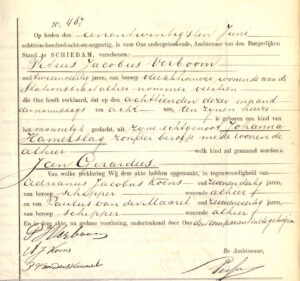 No. 467
Op heden den eenentwintigsten Juni
achttien-honderd-acht-en-negentig, is voor Ons ondergeteekende, Ambtenaar van den Burgerlijken
Stand te SCHIEDAM, verschenen:
Petrus Jacobus Verboom
oud jaren, van beroep wonende aan de
Stationsstraat alhier nommer veertien
die Ons heeft verklaard, dat op den achttienden dezer maand
des namiddags ten acht ure, ten zijnen huize
het mannelijk geslacht, uit zijne echtgenoot Johanna
Hamerslag zonder beroep mede wonende
alhier
welk kind zal genaamd worden:
Jan Gerardus.
Van welke verklaring Wij deze akte hebben opgemaakt, in tegenwoordigheid van
Adrianus Jacobus Koens oud jaren,
van beroep schipper wonende alhier
en van Paulus van der Maarel oud jaren,
van beroep schipper wonende alhier
En is deze akte, na gedane voorlezing, onderteekend door Ons, de comparant en de getuigen
P J Verboom
A J Koens
P van der Maarel
De Ambtenaar,